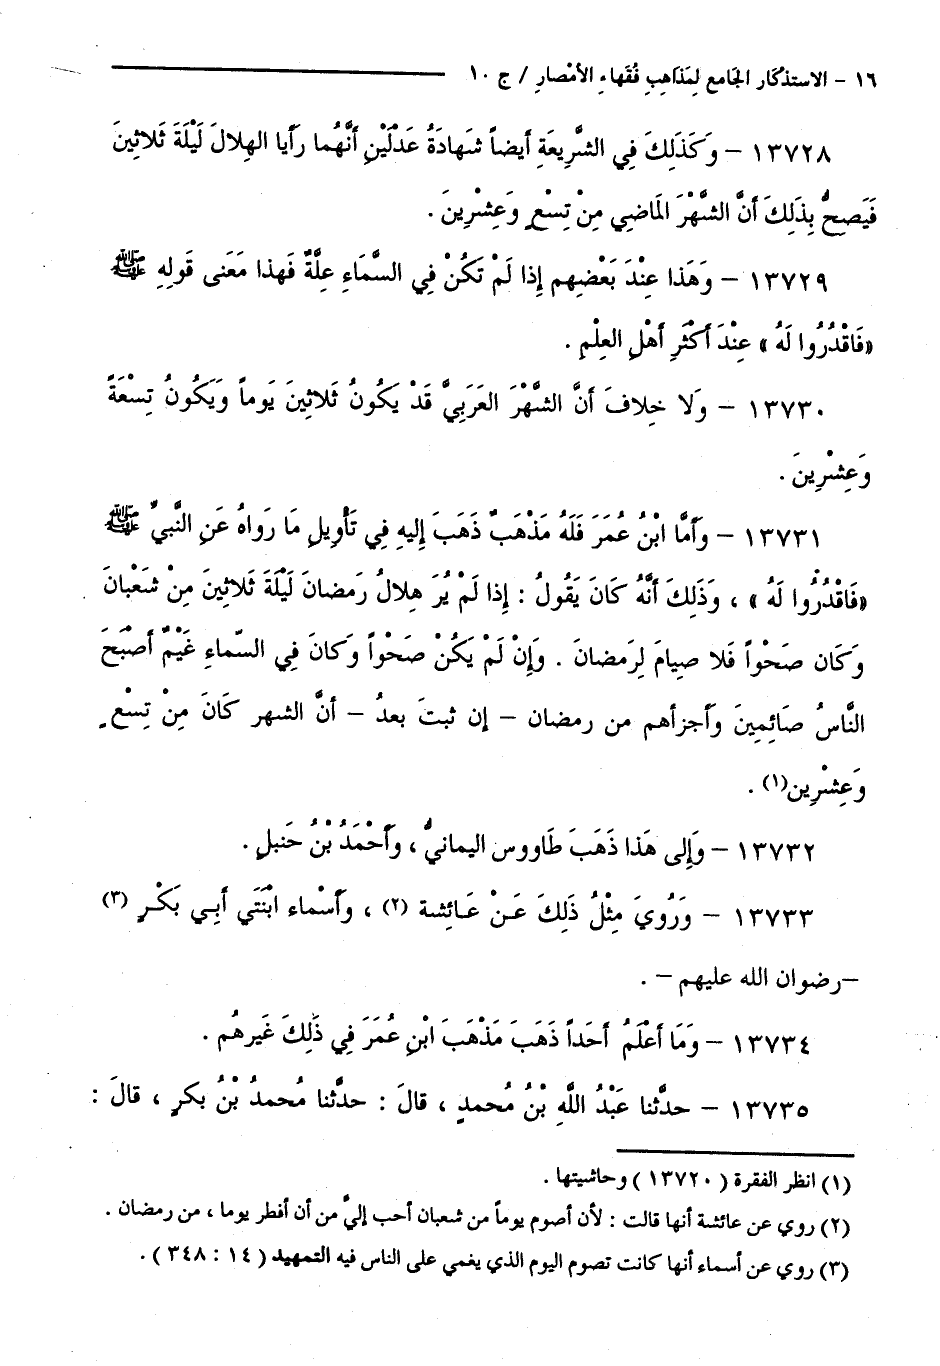 ١٦ - الاستذكار الجامع لِمَذاهِبِ فُقَهاءِ الأمْصارِ / ج ١٠
١٣٧٢٨ - وَكَذَلِكَ فِي الشَّرِيعَةِ أيضاً شَهادَةُ عَدْلَيْنِ أنَّهُما رأيا الهِلالَ لَيْلَةَ ثَلاثِينَ
فَيَصِحُّ بِذَلِكَ أنَّ الشَّهْرَ الَماضِي مِنْ تِسْعٍ وَعِشْرِينَ .
١٣٧٢٩ - وَهَذا عِنْدَ بَعْضِهِم إذا لَمْ تَكُنْ فِي السَّمَاءِ عِلَّةٌ فَهذا مَعَنى قَولِهِ ﷺ
«فَاقْدُرُوا لَهُ» عِنْدَ أكْثَرِ أهْلِ العِلْمِ .
١٣٧٣٠ - وَلَا خِلافَ أنَّ الشَّهْرَ العَرَبيَّ قَدْ يَكُونُ ثَلاثِينَ يَوماً وَيَكُونُ تِسْعَةً
وَعِشْرِينَ .
١٣٧٣١ - وَأمَّا ابْنُ عُمَرَ فَلَهُ مَذْهَبٌ ذَهَبَ إِليهِ فِي تَأوِيلِ مَا رَواهُ عَنِ النَّبيِّ ﷺ
«فَاقْدُرُوا لَهُ» ، وَذَلِكَ أنَّهُ كَانَ يَقُولُ : إذا لَمْ يُرَ هِلالُ رَمَضانَ لَيْلَةَ ثَلاثِينَ مِنْ شَعْبانَ
وَكَان صَحْواً فَلا صِيامَ لِرَمَضانَ . وَإِنْ لَمْ يَكُنْ صَحْواً وَكانَ فِي السّماءِ غَيْمٌ أصْبَحَ
النَّاسُ صَائِمِينَ وَأجزأهم من رمضان - إن ثبتَ بعدُ - أنَّ الشهر كَانَ مِنْ تِسْعٍ
وَعِشْرِين(١) .
١٣٧٣٢ - وَإِلى هَذا ذَهَبَ طَاووس اليمانيُّ ، وَأحْمَدُ بْنُ حَنبلٍ .
١٣٧٣٣ - وَرُوِيَ مِثْلُ ذَلِكَ عَنْ عَائِشة (٢) ، وَأسْماء ابْنَتَي أبِي بَكْرٍ (٣)
-رضوان الله عليهم - .
١٣٧٣٤ - وَمَا أعْلَمُ أحَداً ذَهَبَ مَذْهَبَ ابْنِ عُمَرَ فِي ذَلِكَ غَيرهُم .
١٣٧٣٥ - حدَّثنا عَبْدُ اللَّهِ بْنُ مُحمدٍ ، قالَ : حدَّثنا مُحمدُ بْنُ بكرٍ ، قالَ :
(١) انظر الفقرة ( ١٣٧٢٠ ) وحاشيتها .
(٢) روي عن عائشة أنها قالت : لأن أصوم يوماً من شعبان أحب إليَّ من أن أفطر يوما ، من رمضان .
(٣) روي عن أسماء أنها كانت تصوم اليوم الذي يغمى على الناس فيه التمهيد ( ١٤ : ٣٤٨ ) .